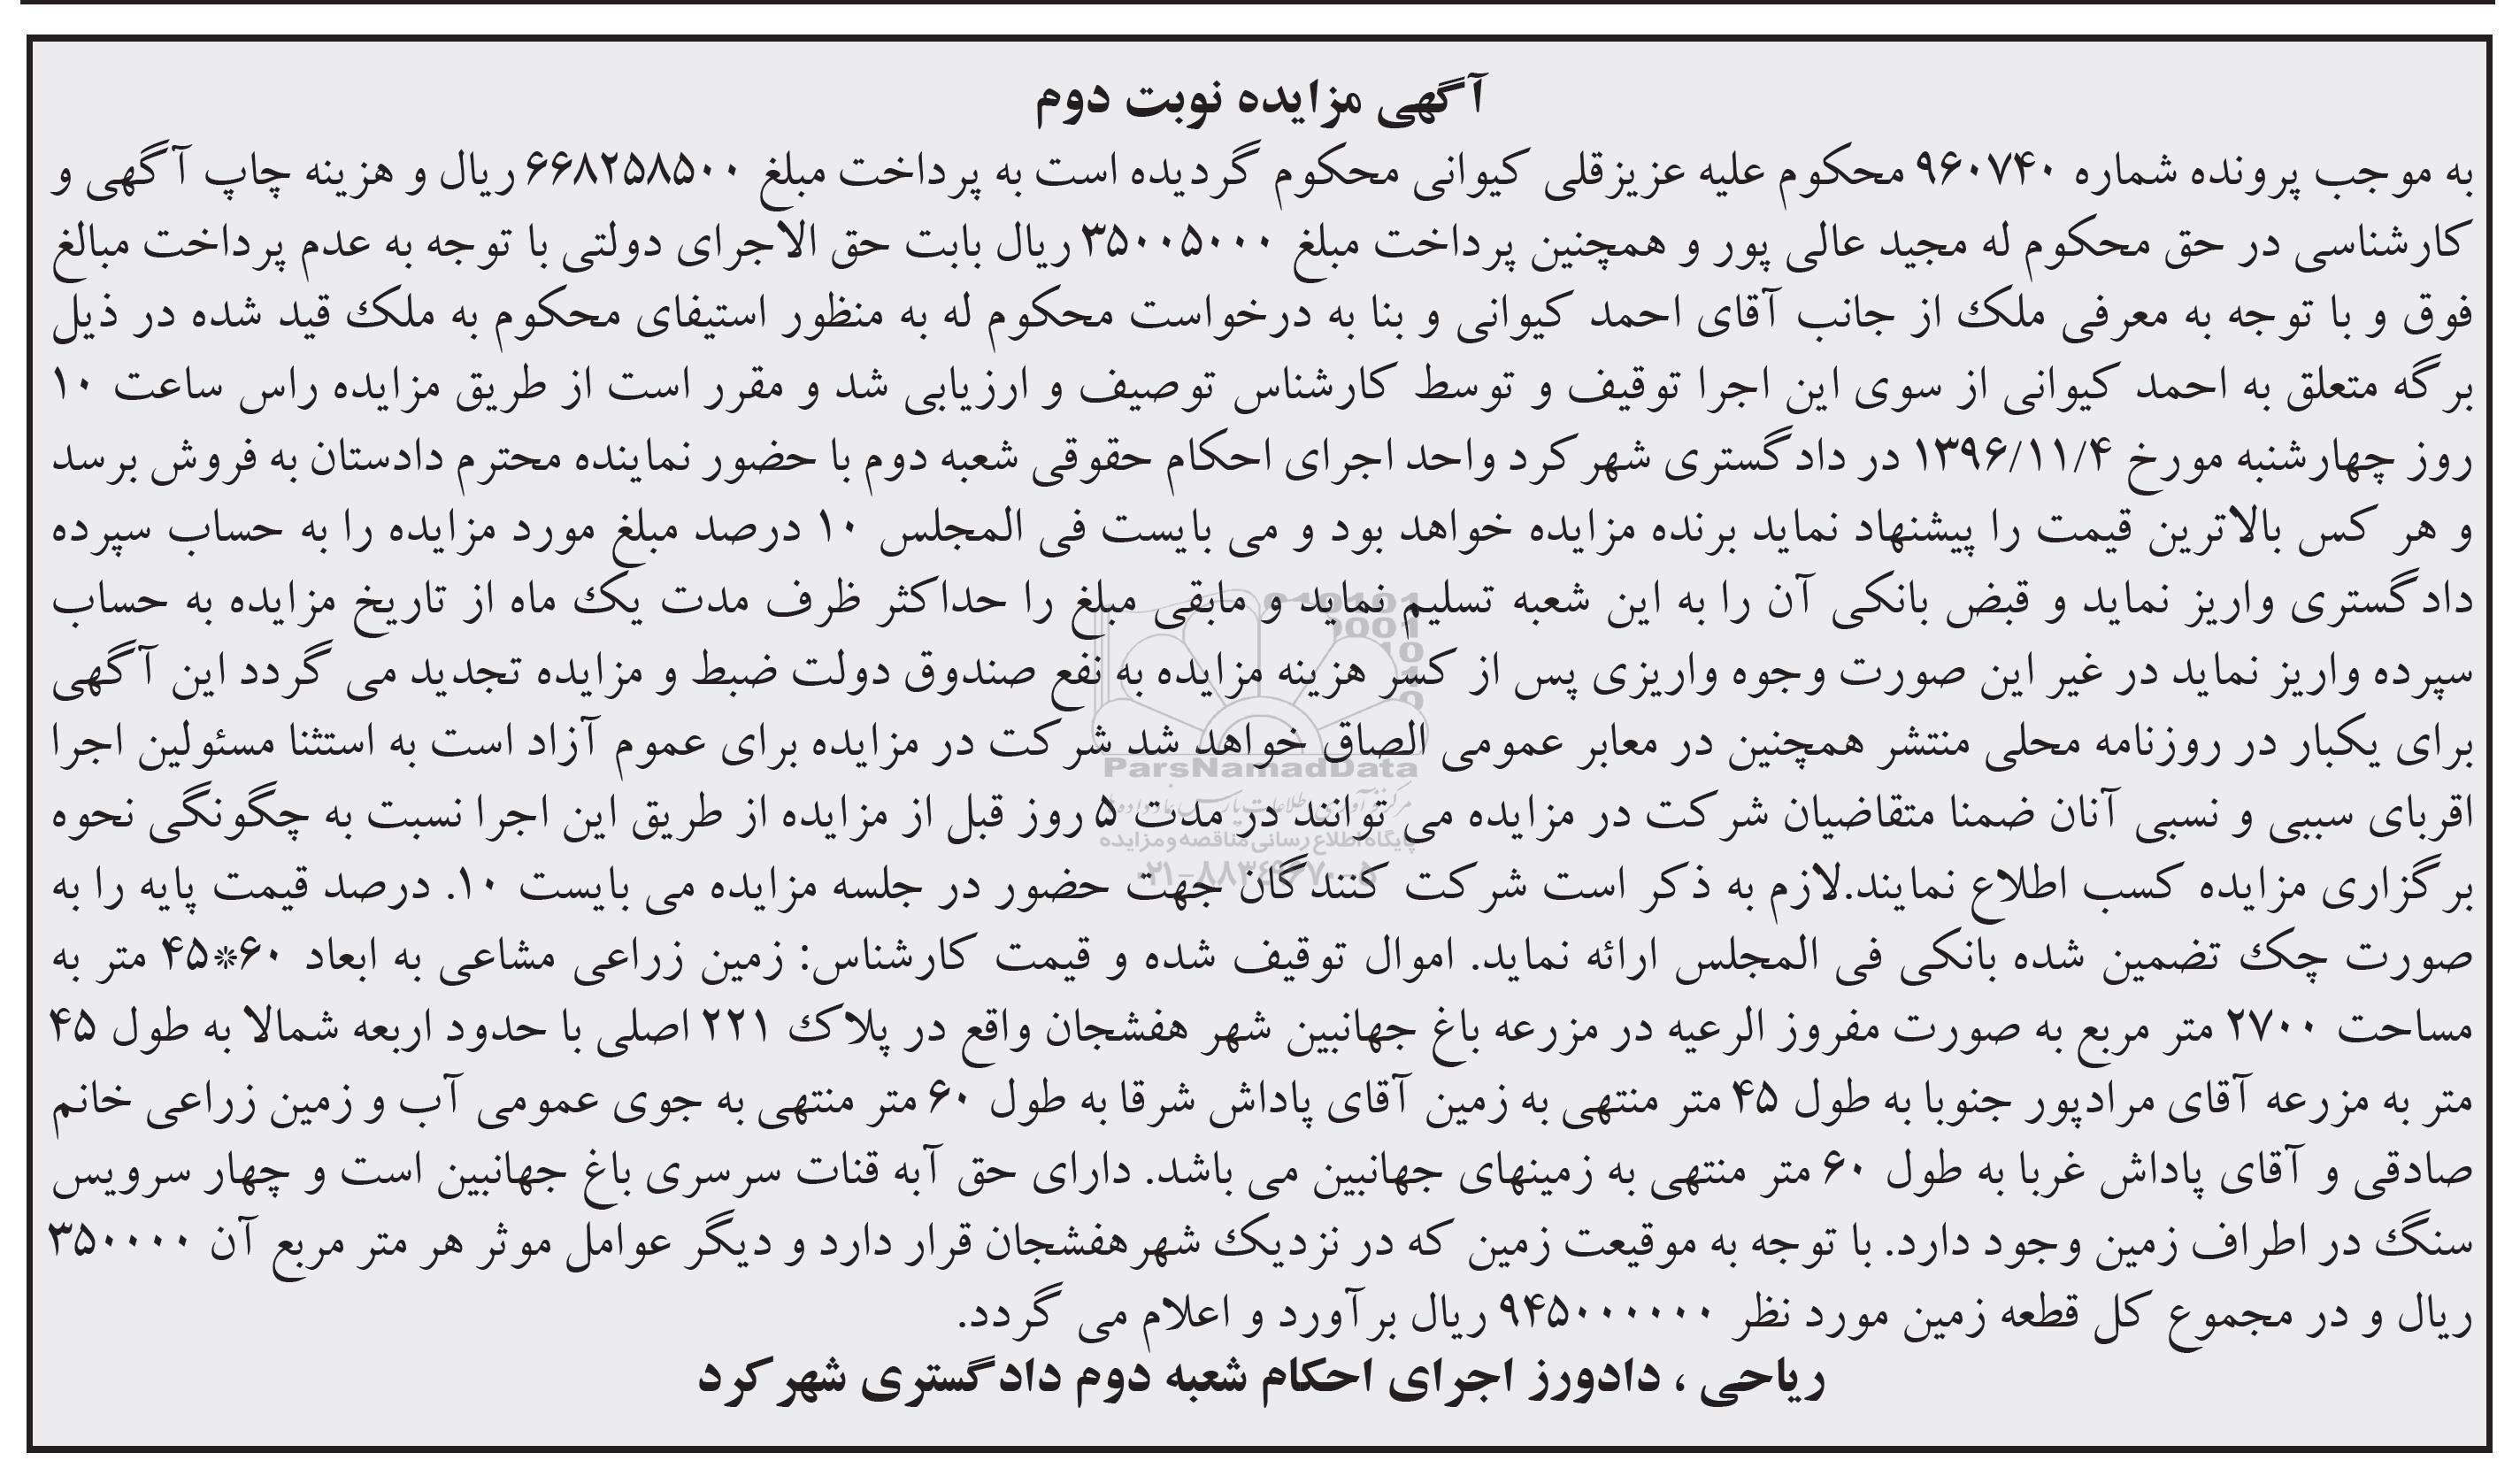 آگهی مزایده نوبت دوم
به موجب پرونده شماره ۹۶۰۷۴۰ محکوم علیه عزیزقلی کیوانی محکوم گردیده است به پرداخت مبلغ ۶۶۸۲۵۸۵۰۰ ریال و هزینه چاپ آگهی و
کارشناسی در حق محکوم له مجید عالی پور و همچنین پرداخت مبلغ ۳۵۰۰۵۰۰۰ ریال بابت حق الاجرای دولتی با توجه به عدم پرداخت مبالغ
فوق و با توجه به معرفی ملک از جانب آقای احمد کیوانی و بنا به درخواست محکوم له به منظور استیفای محکوم به ملک قید شده در ذیل
برگه متعلق به احمد کیوانی از سوی این اجرا توقیف و توسط کارشناس توصیف و ارزیابی شد و مقرر است از طریق مزایده راس ساعت ۱۰
روز چهارشنبه مورخ ۱۳۹۶/۱۱/۴ در دادگستری شهر کرد واحد اجرای احکام حقوقی شعبه دوم با حضور نماینده محترم دادستان به فروش برسد
و هر کس بالاترین قیمت را پیشنهاد نماید برنده مزایده خواهد بود و می بایست فی المجلس ۱۰ درصد مبلغ مورد مزایده را به حساب سپرده
دادگستری واریز نماید و قبض بانکی آن را به این شعبه تسلیم نماید و مابقی مبلغ را حداکثر ظرف مدت یک ماه از تاریخ مزایده به حساب
سپرده واریز نماید در غیر این صورت وجوه واریزی پس از کسر هزینه مزایده به نفع صندوق دولت ضبط و مزایده تجدید می گردد این آگهی
برای یکبار در روزنامه محلی منتشر همچنین در معابر عمومی الصاق خواهد شد شرکت در مزایده برای عموم آزاد است به استثنا مسئولین اجرا
اقربای سببی و نسبی آنان ضمنا متقاضیان شرکت در مزایده می توانند در مدت ۵ روز قبل از مزایده از طریق این اجرا نسبت به چگونگی نحوه
برگزاری مزایده کسب اطلاع نمایند.لازم به ذکر است شرکت کنندگان جهت حضور در جلسه مزایده می بایست ۱۰. درصد قیمت پایه را به
صورت چک تضمین شده بانکی فی المجلس ارائه نماید. اموال توقیف شده و قیمت کارشناس: زمین زراعی مشاعی به ابعاد ۶۰*۴۵ متر به
مساحت ۲۷۰۰ متر مربع به صورت مفروز الرعیه در مزرعه باغ جهانبین شهر هفشجان واقع در پلاک ۲۲۱ اصلی با حدود اربعه شمالا به طول ۴۵
متر به مزرعه آقای مرادپور جنوبا به طول ۴۵ متر منتهی به زمین آقای پاداش شرقا به طول ۶۰ متر منتهی به جوی عمومی آب و زمین زراعی خانم
صادقی و آقای پاداش غربا به طول ۶۰ متر منتهی به زمینهای جهانبین می باشد. دارای حق آبه قنات سرسری باغ جهانبین است و چهار سرویس
سنگ در اطراف زمین وجود دارد. با توجه به موقیعت زمین که در نزدیک شهرهفشجان قرار دارد و دیگر عوامل موثر هر متر مربع آن ۳۵۰۰۰۰
ریال و در مجموع کل قطعه زمین مورد نظر ۹۴۵۰۰۰۰۰۰ ریال برآورد و اعلام می گردد.
ریاحی ، دادورز اجرای احکام شعبه دوم دادگستری شهرکرد
ParsNamadData
پایگاه اطلاع رسانی مناقصه و مزایده